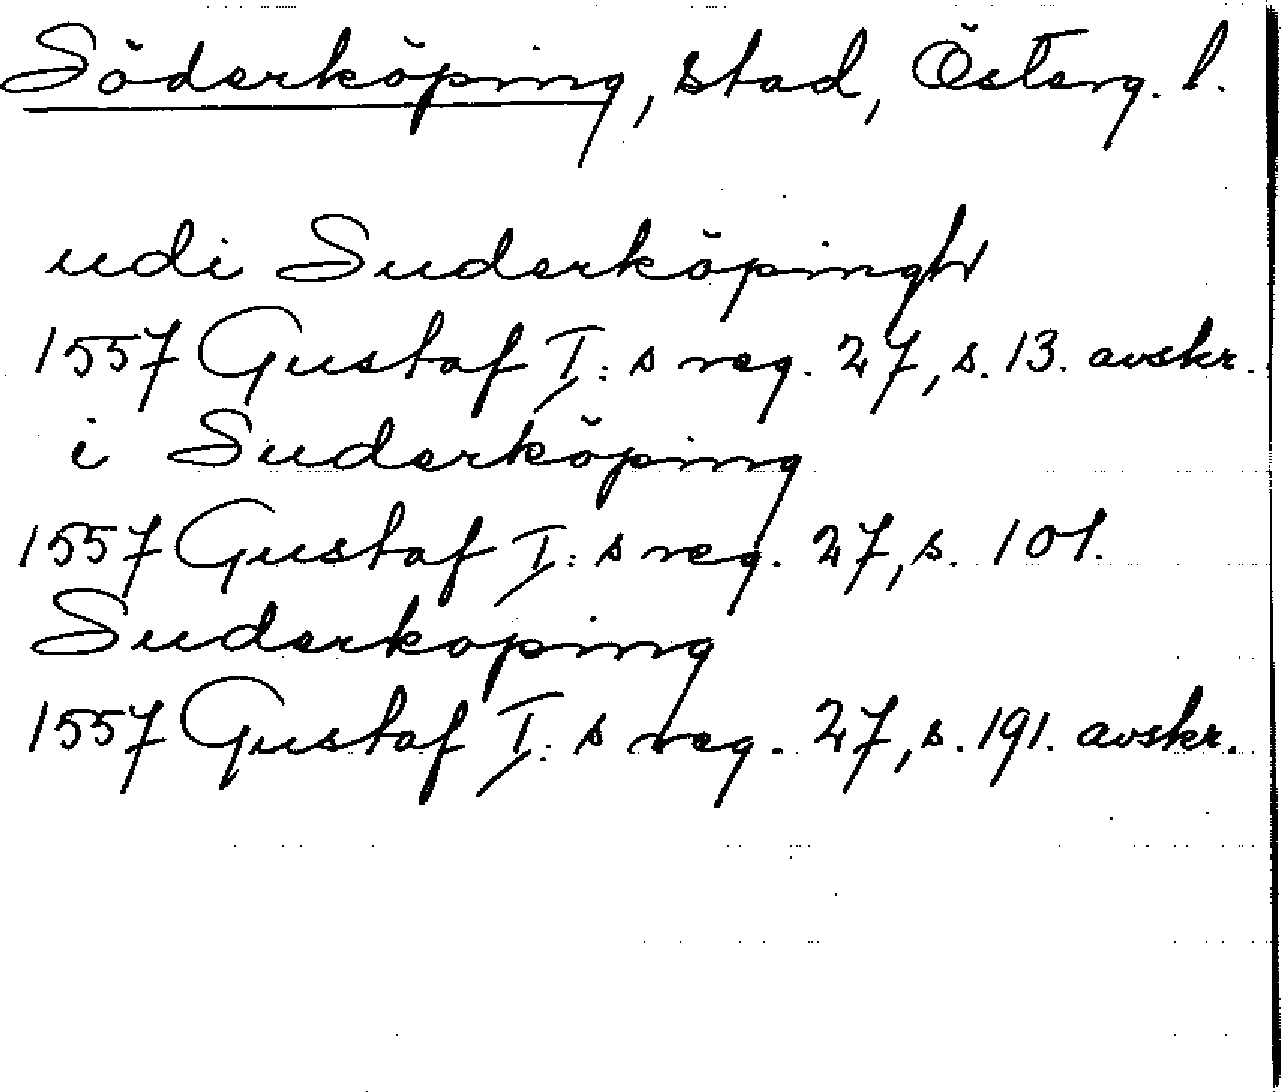 Söderköping, stad, Österg. l.
udi Suderköpingh
1557 Gustaf I:s reg. 27, s. 13. avskr.
i Suderköping
1557 Gustaf I:s reg. 27, s. 101.
Suderkoping
1557 Gustaf I:s reg. 27, s. 191. avskr.